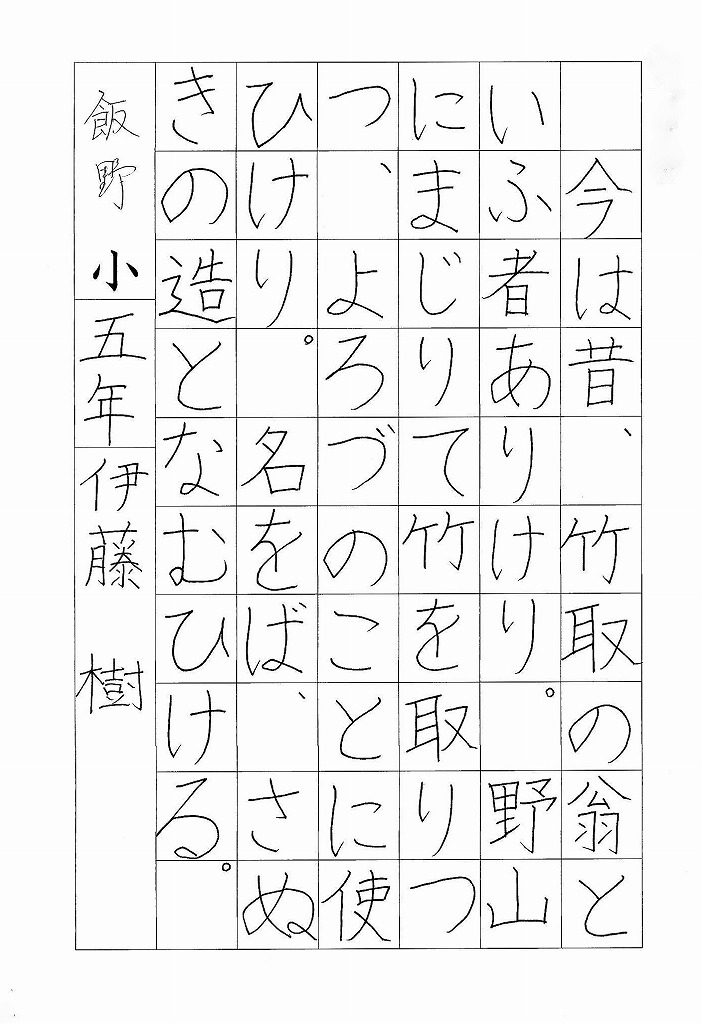 今は昔、竹取の翁と
いふ者ありけり。野山
にまじりて竹を取りつ
つ、よろづのことに使
ひけり。名をば、さぬ
きの造となむひける。
飯野小五年伊藤樹